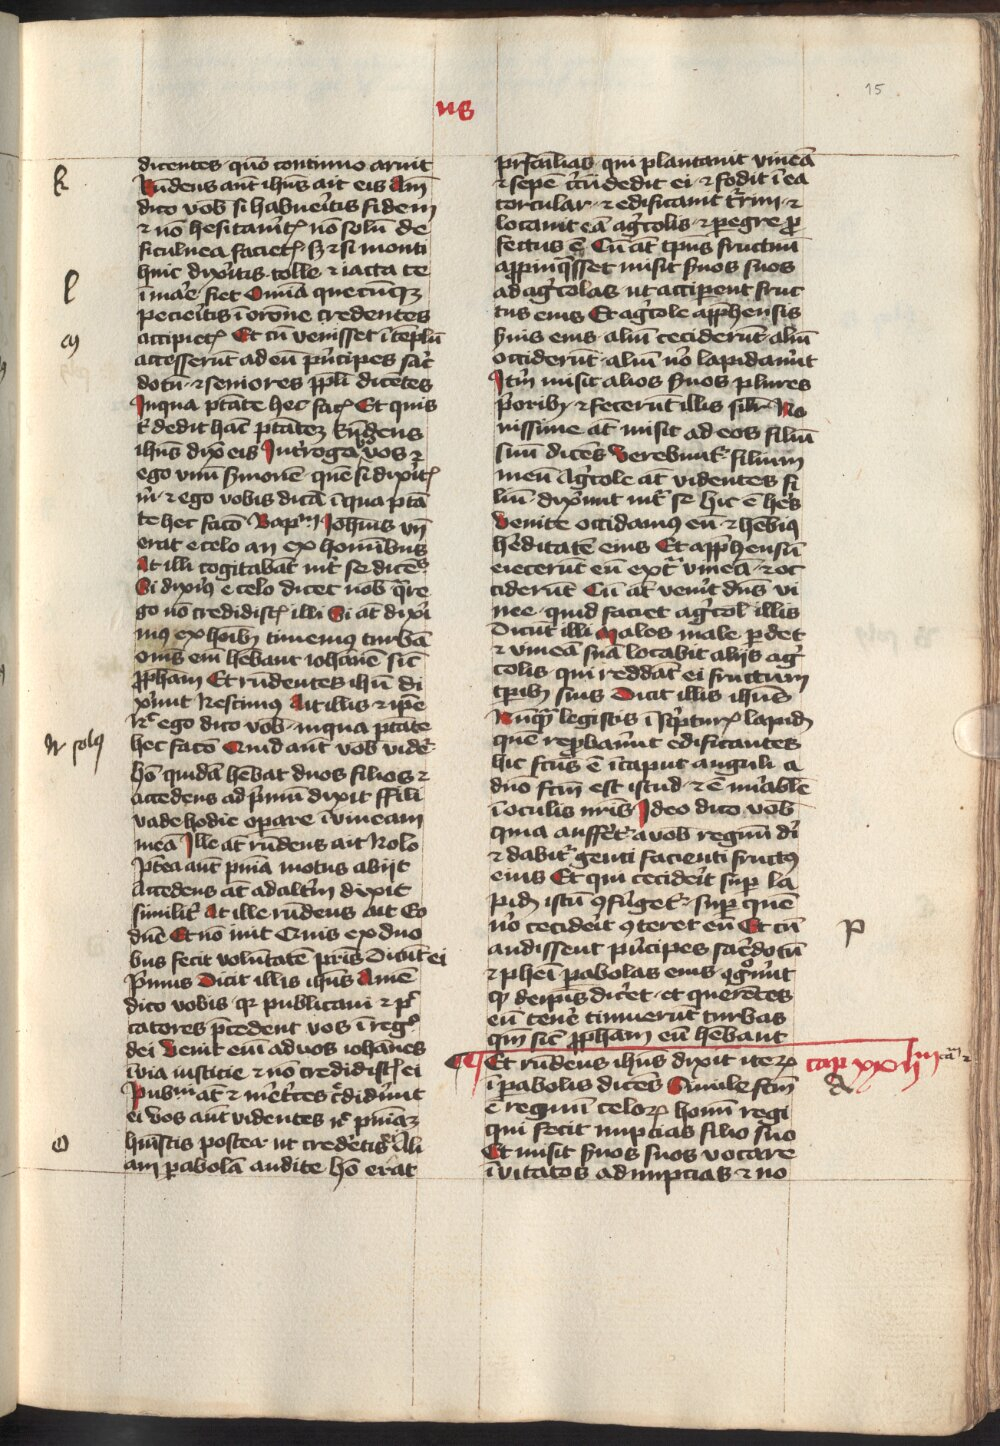 15
us
k
dicentes quō continuo aruit
Rn̄dens aut ihūs ait eis Am̄
dico vob̄ si habueritis fidem
⁊ nō hesitauˀitꝭ nō solū de
ficulnea facietꝭ Sꝫ ⁊ si monti
huic dixˀitis tolle ⁊ iacta te
l
ī maˀe fiet Omīa quecūqꝫ
pecieˀitis ī orōne credentes
m
accipietꝭ Et cū venisset ī tēplū
accesserūt ad eū pˀncipes sacˀ
dotū ⁊ seniores ppl̄i dicētes
In qua ptāte hec facꝭ Et quis
tˀ dedit hāc ptātēꝫ Rn̄dens
ihūs dix̄ eis Intˀrogabo vos ⁊
ego vnū sˀmonē quē si dixˀitꝭ
mˀ ⁊ ego vobis dicā ī qua ptā
te hec faco Bapˀmꝰ Iohīnis vn̄
erat e celo an ex hominibus
At illi cogitabāt intˀ se dicētˢ
Si dixˀimꝰ e celo dicet nob̄ qˀre
go nō credidistꝭ illi Si at dixˀi
mꝰ ex hoībꝫ timemꝰ turbā
om̄s em̄ hēbant iohānē sicˀ
ꝓpham̄ Et rn̄dentes ihū di
xˀunt Nescimꝰ Ait illis ⁊ ip̄e
Nˀ ego dico vob̄ in qua ptāte
N solꝰ
hec faco Quid aut vob̄ videˀ
hō quidā hēbat duos filios ⁊
accedens ad pˀmū dixit ffili
vade hodie operare ī vineam
meā Ille āt rn̄dens ait Nolo
Pˀtea aut pnīa motus abijt
Accedens at ad altˀm dixit
similitˀ At ille rn̄dens ait Eo
dn̄e Et nō iuit Quis ex duo
bus fecit volūtatē pris̄ Dicūt ei
pˀmus Dicit illis ihūs Amē
dico vobis qꝛ publicani ⁊ pcˀ
catores pˀcedent vos ī regˀ
dei Venit em̄ ad vos iohānes
ī via iusticie ⁊ nō credidistꝭ ei
Publiˀ āt ⁊ mˀetˀces cˀdidˀunt
ei Vos aut videntes nˀ pnīaꝫ
o
huīstis postea ut credˀetis ei Ali
am pabolā audite hō erat
prˀfāilias qui plantauit vineā
⁊ sepē cˀcū dedit ei ⁊ fodit ī ea
torcular ⁊ edificauit tˀrim ⁊
locauit eā agˀcolis ⁊ pegre ꝓ
fectus ē Cū āt tp̄us fructuū
appinqˀsset misit sˀuos suos
ad agˀcolas ut acciperent fruc
tus eius Et agˀcole app̄hensis
sˀuis eius aliū ceciderūt aliū
occiderūt aliū vo lapidauˀūt
Itˀm misit alios sˀuos plures
pˀoribꝫ ⁊ fecerūt illis silˀr No
uissime āt misit ad eos filiū
suū dicēs Verebunt filium
meū Agˀcole āt videntes fi
liū dixˀunt intˀ se hic ē hēs
Venite occidamꝰ eū ⁊ hēbiꝰ
hˀeditatē eius Et app̄hensū
eiecerūt eū extˀ vineā ⁊ oc
ciderūt Cū āt venˀit dn̄s vi
nee quid faciet agˀcol illis
Dicūt illi Malos male pˀdet
⁊ vineā suā locabit aliis agˀ
colis qui reddāt ei fructum
tp̄ibꝫ suis Dicit illis ihūs
Nūqˀ legistis ī scˀpturꝭ lapidē
quē repbauˀūt edificantes
hic fcūs ē ī caput anguli a
dn̄o fcm̄ est istud ⁊ ē mˀabile
ī oculis nr̄is Ideo dico vob̄
quia auffˀetˀ a vob̄ regnū dˀi
⁊ dabitˀ genti facienti fructꝰ
eius Et qui cecidˀeit sup la
pidē istū ꝯfˀngetˀ sup quē
vˀo cecidˀeit ꝯteret eū Et cū
p
audissent pˀncipes sacˀdotū
⁊ phei pabolas eius ꝯgˀuˀūt
qꝫ de ip̄is dicˀet et querentes
eū tenˀe timuerūt turbas
qm̄ sicˀ ꝓpham eū hēbant
Et rn̄dens ihūs dixit iteꝝ
cap xxij
A
ī pabolis dicēs Simile fcm̄
ē regnū celoꝝ homī regi
qui fecit nupcias filio suo
Et misit sˀuos suos vocare
īvitatos ad nupcias ⁊ no